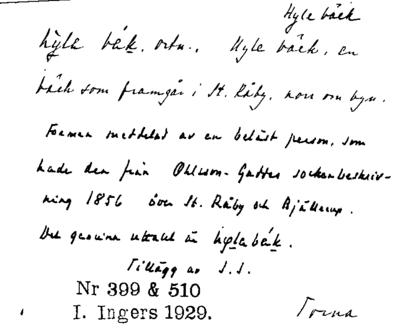 Hyle bäck
hy̨la bäk, ortn., Hyle bäck, en
bäck som framgår i St. Råby, norr om byn.
Formen meddelad av en beläst person, som
hade den från Ohlsson-Gaddes sockenbeskriv-
ning 1856 över St. Råby och Bjällerup.
Det genuina uttalet är hy̨labäk.
Tillägg av S.S.
Nr 399 & 510
I. Ingers 1929.
Torna